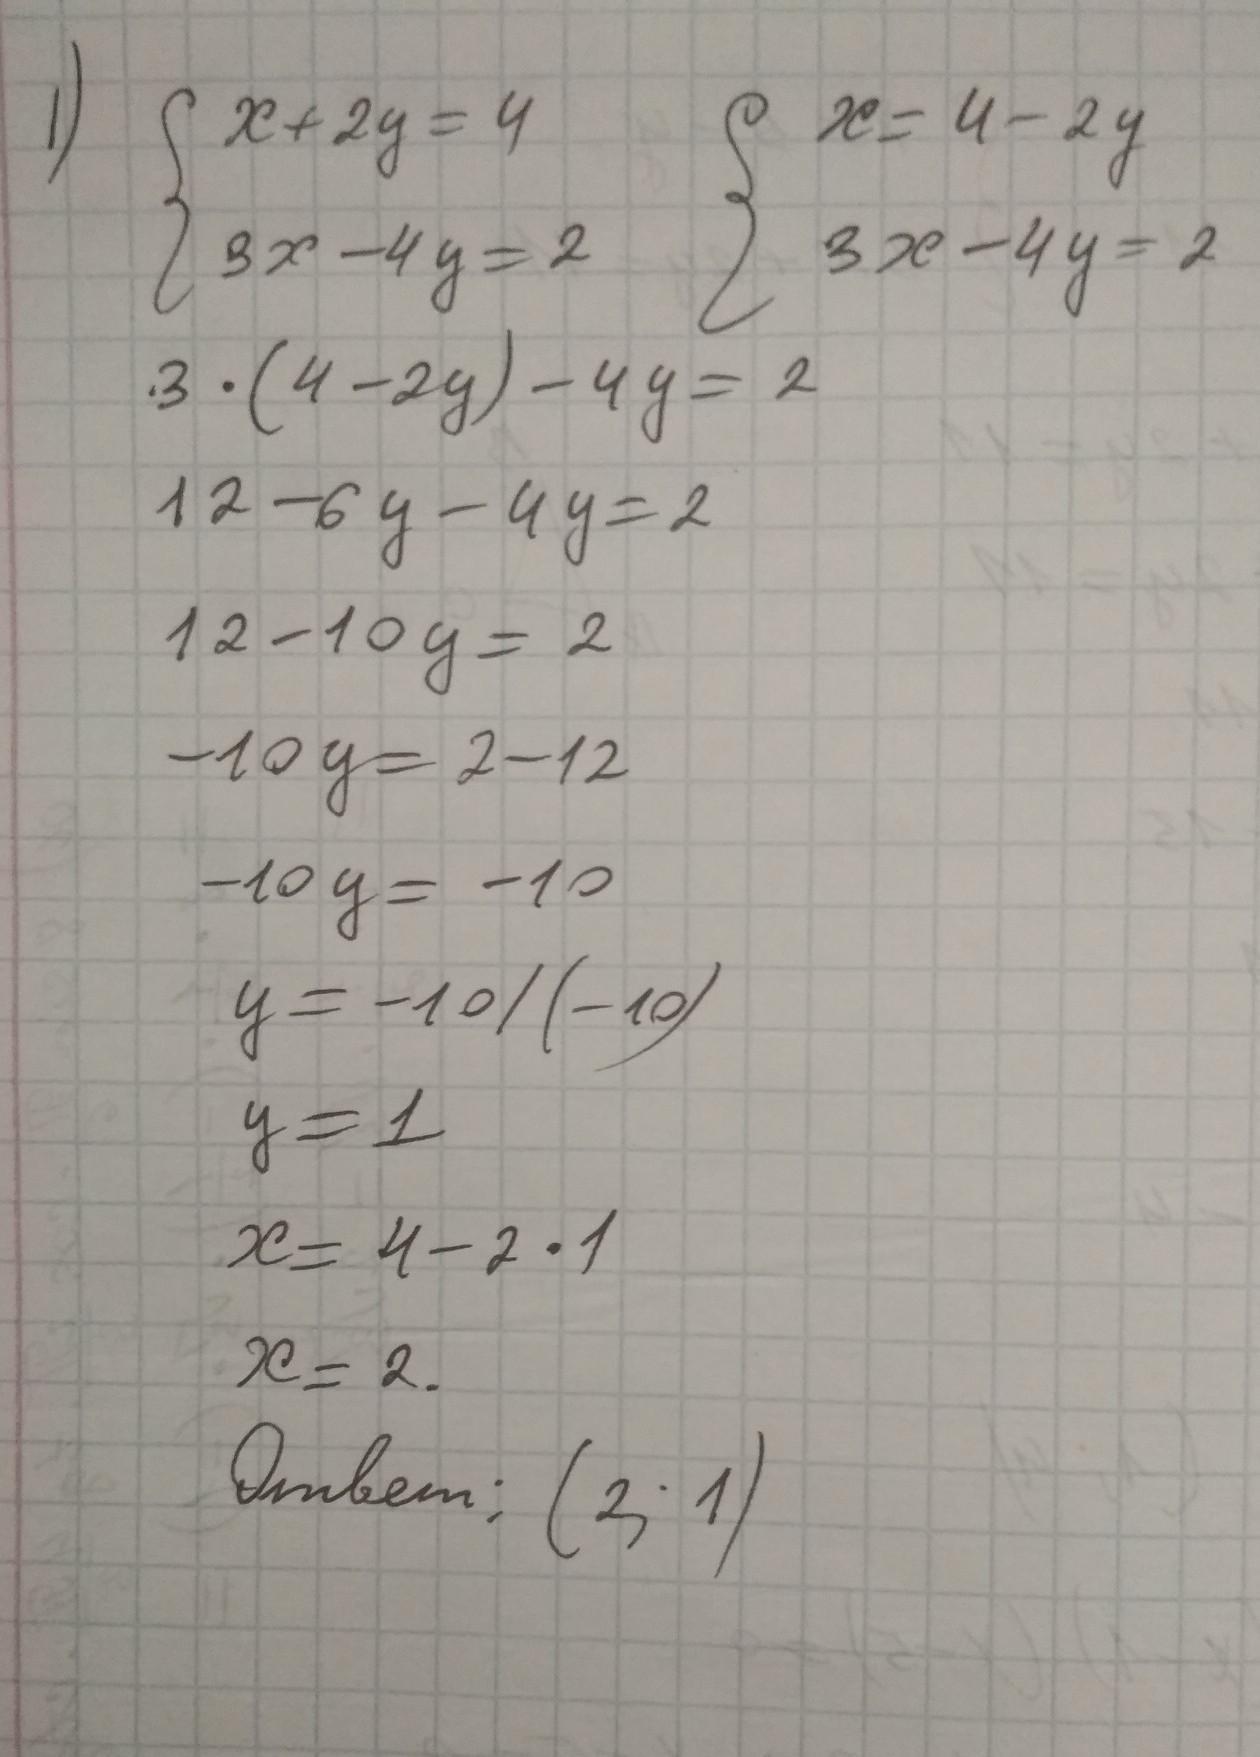 1) { x + 2y = 4 { x = 4 - 2y
3x - 4y = 2 3x - 4y = 2
3 · (4 - 2y) - 4y = 2
12 - 6y - 4y = 2
12 - 10y = 2
-10y = 2 - 12
-10y = -10
y = -10/(-10)
y = 1
x = 4 - 2 · 1
x = 2.
Ответ: (2; 1)